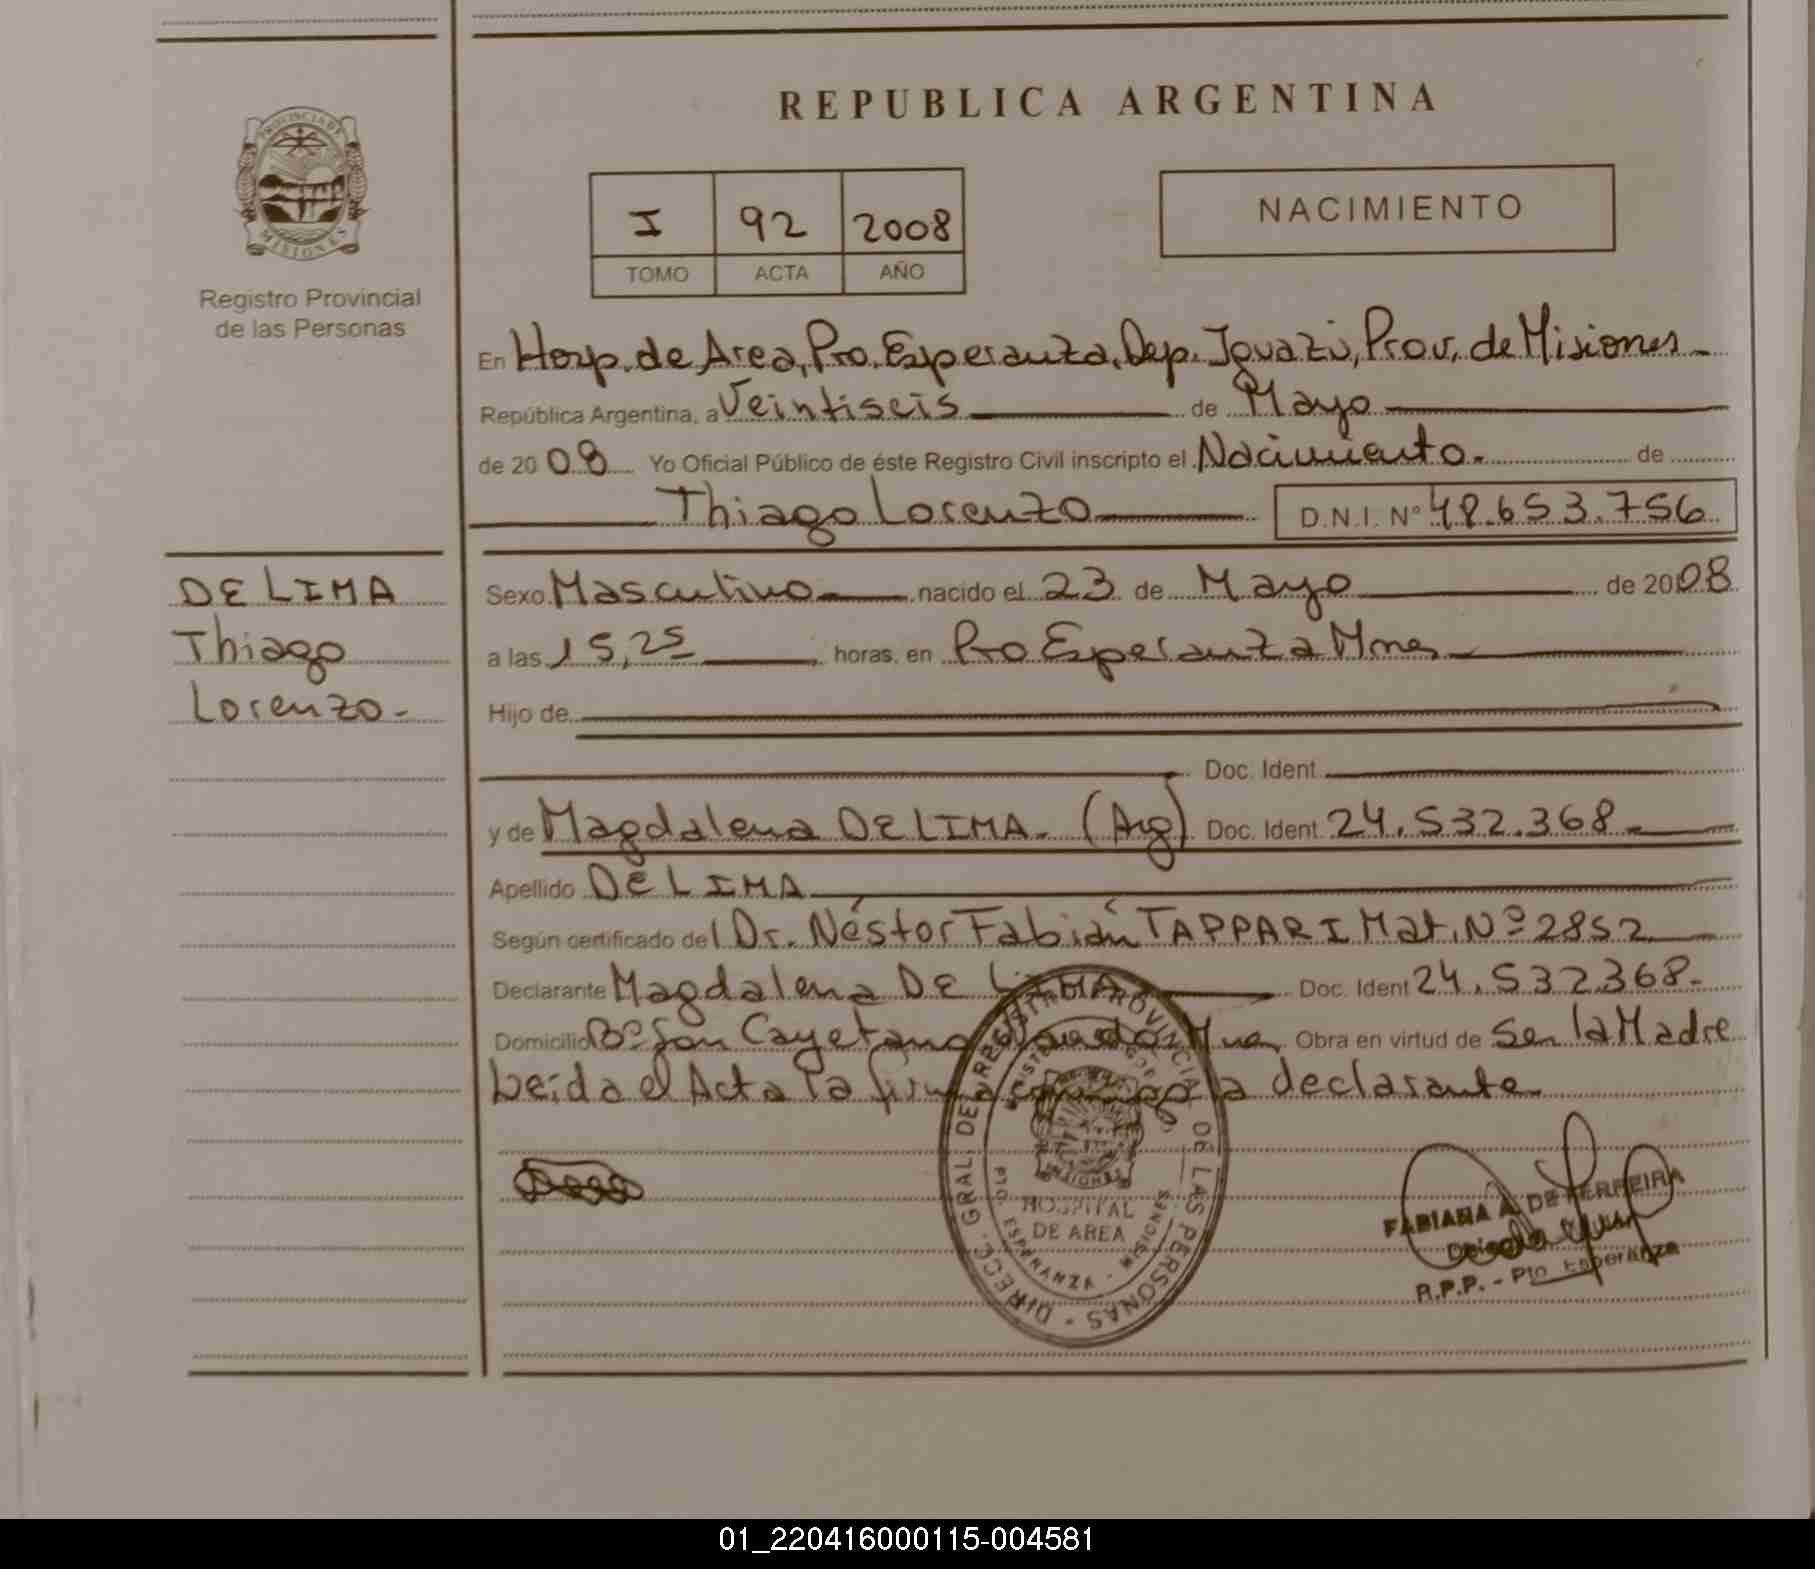 REPUBLICA ARGENTINA
PROVINCIA DE
MISIONES
Registro Provincial
de las Personas
I 92 2008
TOMO ACTA AÑO
NACIMIENTO
En Hosp. de Area, Pto. Esperanza, Dep. Iguazú, Prov. de Misiones
República Argentina, a Veintiseis de Mayo
de 2008 Yo Oficial Público de éste Registro Civil inscripto el Nacimiento. de
Thiago Lorenzo D.N.I. Nº 48.653.756
DE LIMA
Thiago
Lorenzo-
Sexo Masculino nacido el 23 de Mayo de 2008
a las 15,25 horas, en Pto Esperanza Mnes
Hijo de
Doc. Ident.
y de Magdalena DE LIMA. (Arg) Doc. Ident. 24.532.368
Apellido DE LIMA
Según certificado del Dr. Néstor Fabián TAPPARI Mat. Nº 2852
Declarante Magdalena DE LIMA Doc. Ident 24.532.368-
Domicilio Bº San Cayetano Mnes Obra en virtud de Ser la Madre
Leída el Acta la firma la declarante
DIRECC. GRAL. DEL REGISTRO PROVINCIAL DE LAS PERSONAS
MISIONES
HOSPITAL
DE AREA
PTO. ESPERANZA - MISIONES
FABIANA A. DE FERREIRA
R.P.P. - Pto. Esperanza
01_220416000115-004581